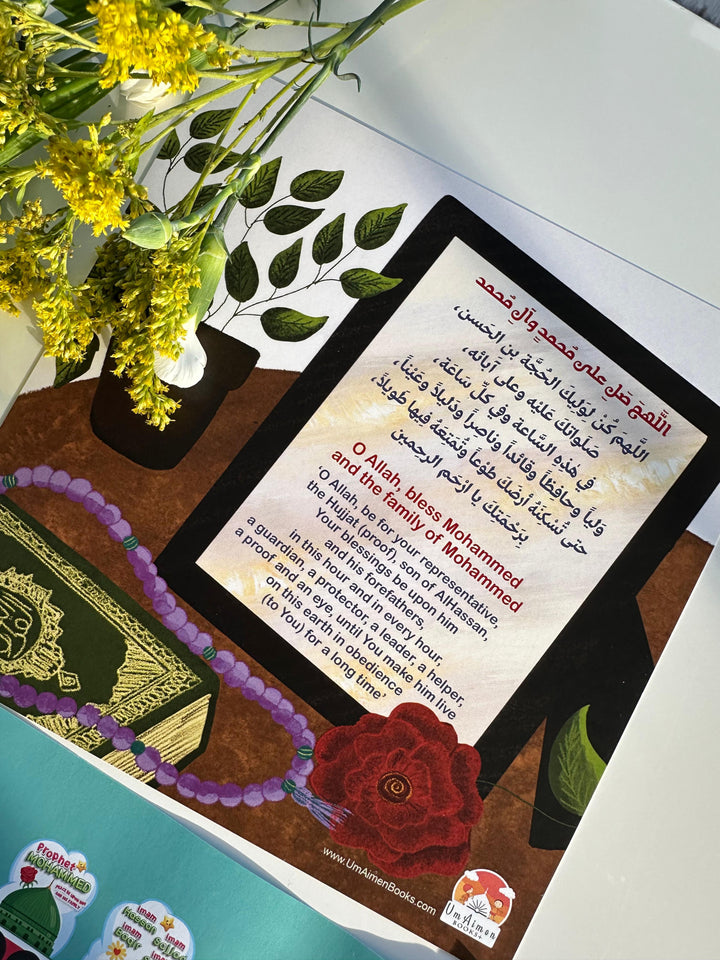 اللَّهمَّ صَل على مُحمدٍ وآلِ مُحمد
اللَّهم كُنْ لوَليكَ الحُجَّة بنِ الحَسن،
صَلَواتكَ عَلَيْه وعلى آبائه،
في هَذهِ السَّاعةِ وفي كُلِّ ساعَة،
وَلياً وحافظاً وقائداً وناصِراً ودَليلاً وعَيْناً،
حتى تُسْكِنَهُ أرضَكَ طَوعاً وتُمَتعَهُ فيها طَويلاً،
بِرَحْمَتِكَ يا ارْحَم الرحمين
O Allah, bless Mohammed
and the family of Mohammed
'O Allah, be for your representative,
the Hujjat (proof), son of AlHassan,
Your blessings be upon him
and his forefathers
in this hour and in every hour,
a guardian, a protector, a leader, a helper,
a proof and an eye, until You make him live
on this earth in obedience
(to You) for a long time'
www.UmAimenBooks.com
Um Aimen
BOOKS+
Prophet
MOHAMMED
Imam
Hassan
Imam
Sajjad
Imam